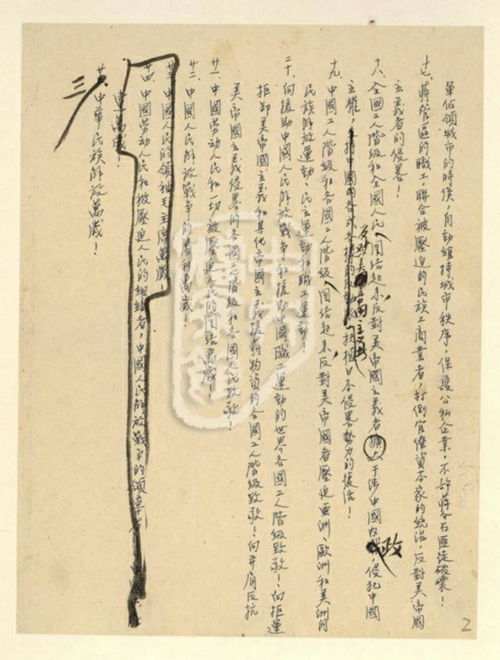 軍佔領城市的時候,自動維持城市秩序,保護公私企業,不許蔣介石匪徒破壞!
十七、蔣管區的職工,聯合被壓迫的民族工商業者,打倒官僚資本家的統治,反對美帝國
主義者的侵畧!
十八、全國工人階級和全國人民,團結起來,反對美帝國主義者干涉中國內政,侵犯中國
主權,反對美帝國主義扶植日本侵畧勢力的復活!
十九、中國工人階級和各國工人階級,團結起來,反對美帝國者壓迫亞洲、歐洲和美洲的
民族解放運動、民主運動和職工運動!
二十、向援助中國人民解放戰爭和援助中國職工運動的世界各國工人階級致敬!向拒運
拒卸美帝國主義和其他帝國主義援蔣物資的各國工人階級致敬!向并肩反抗
美帝國主義侵畧的各國工人階級和各國人民致敬!
廿一、中國勞動人民和一切被壓迫人民的團結萬歲!
廿二、中國人民解放戰爭的勝利萬歲!
廿三、中國人民的領袖毛主席萬歲!
廿四、中國勞動人民和被壓迫人民的組織者,中國人民解放戰爭的領導者
萬歲!
三
廿 中華民族解放萬歲!
2